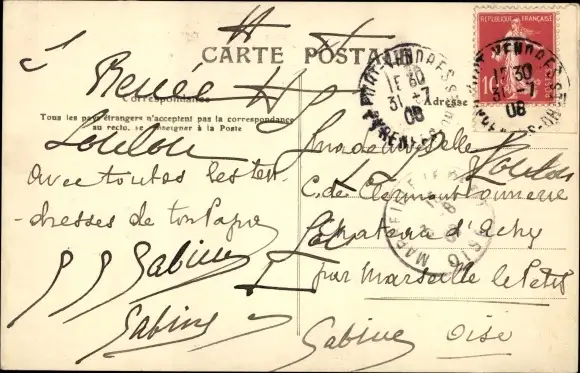 CARTE POSTALE
Correspondance
Adresse
Tous les pays étrangers n'acceptent pas la correspondance
au recto, se renseigner à la Poste
REPUBLIQUE FRANÇAISE
10
15 30
31 -7
08
15 30
31 -7
08
Renée
Loulou
avec toutes les ten-
-dresses de ton Papa
Gabine
Gabine
Gabine
Mademoiselle
Loulou
C. de Clermont Tonnerre
Château d'Achy
par Marseille le Petit
Oise